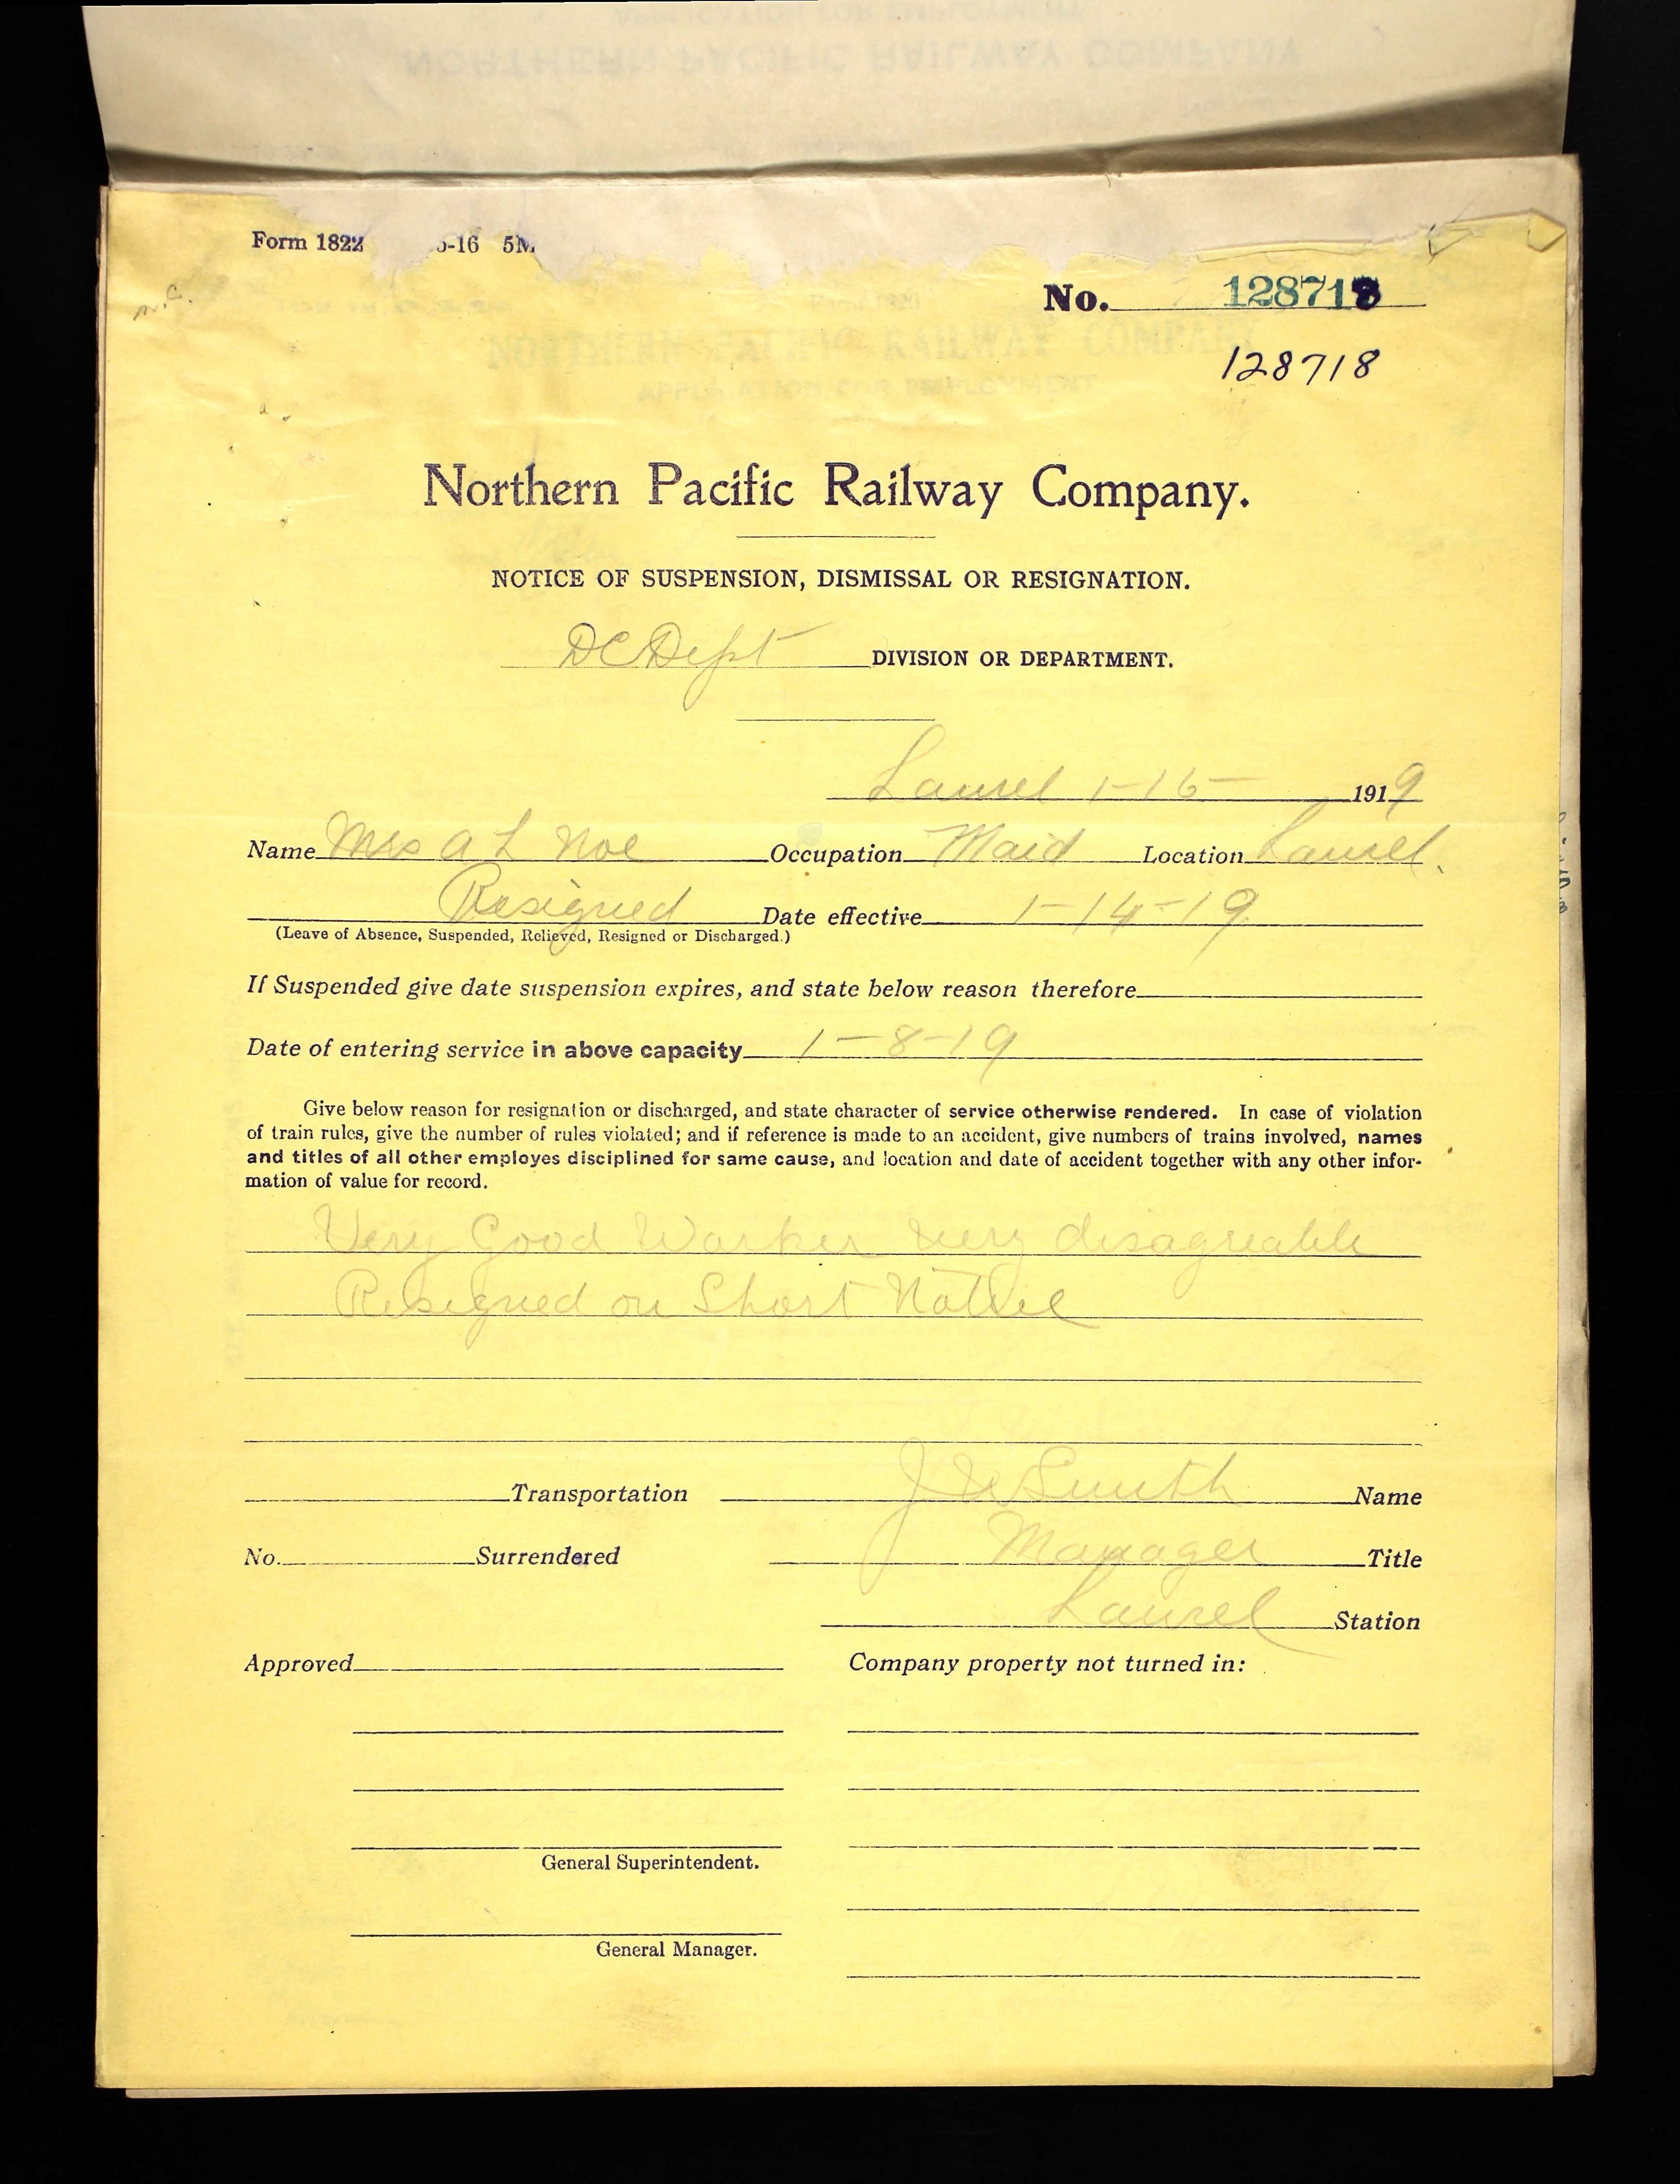 Form 1822 5-16 5M
No. 128718
128718
N.C.
Northern Pacific Railway Company.
NOTICE OF SUSPENSION, DISMISSAL OR RESIGNATION.
DC Dept DIVISION OR DEPARTMENT.
Laurel 1-15- 1919
Name Mrs A L Noe Occupation Maid Location Laurel.
Resigned Date effective 1-14-19
(Leave of Absence, Suspended, Relieved, Resigned or Discharged.)
If Suspended give date suspension expires, and state below reason therefore
Date of entering service in above capacity 1-8-19
Give below reason for resignation or discharged, and state character of service otherwise rendered. In case of violation
of train rules, give the number of rules violated; and if reference is made to an accident, give numbers of trains involved, names
and titles of all other employes disciplined for same cause, and location and date of accident together with any other infor-
mation of value for record.
Very Good Worker very disagreable
Resigned on Short Notice
Transportation J W Smith Name
No. Surrendered Manager Title
Laurel Station
Approved Company property not turned in:
General Superintendent.
General Manager.